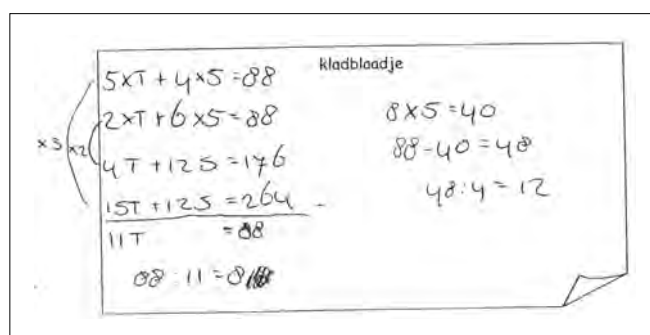 kladblaadje
5xT + 4xS = 88
2xT + 6xS = 88
x3 x2
4T + 12S = 176
15T + 12S = 264
11T = 88
88 : 11 = 8
8 x 5 = 40
88 - 40 = 48
48 : 4 = 12